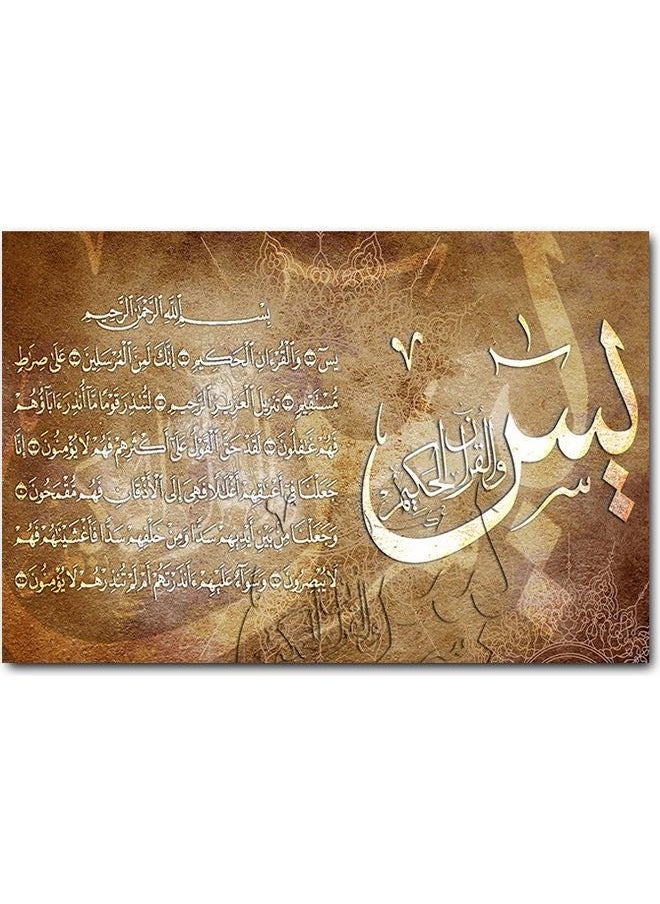 بِسْمِ ٱللَّهِ ٱلرَّحْمَٰنِ ٱلرَّحِيمِ
يسٓ ۝ وَٱلْقُرْءَانِ ٱلْحَكِيمِ ۝ إِنَّكَ لَمِنَ ٱلْمُرْسَلِينَ ۝ عَلَىٰ صِرَٰطٍ
مُّسْتَقِيمٍ ۝ تَنزِيلَ ٱلْعَزِيزِ ٱلرَّحِيمِ ۝ لِتُنذِرَ قَوْمًا مَّآ أُنذِرَ ءَابَآؤُهُمْ
فَهُمْ غَٰفِلُونَ ۝ لَقَدْ حَقَّ ٱلْقَوْلُ عَلَىٰٓ أَكْثَرِهِمْ فَهُمْ لَا يُؤْمِنُونَ ۝ إِنَّا
جَعَلْنَا فِىٓ أَعْنَٰقِهِمْ أَغْلَٰلًا فَهِىَ إِلَى ٱلْأَذْقَانِ فَهُم مُّقْمَحُونَ ۝
وَجَعَلْنَا مِنۢ بَيْنِ أَيْدِيهِمْ سَدًّا وَمِنْ خَلْفِهِمْ سَدًّا فَأَغْشَيْنَٰهُمْ فَهُمْ
لَا يُبْصِرُونَ ۝ وَسَوَآءٌ عَلَيْهِمْ ءَأَنذَرْتَهُمْ أَمْ لَمْ تُنذِرْهُمْ لَا يُؤْمِنُونَ ۝
يس
والقرآن الحكيم